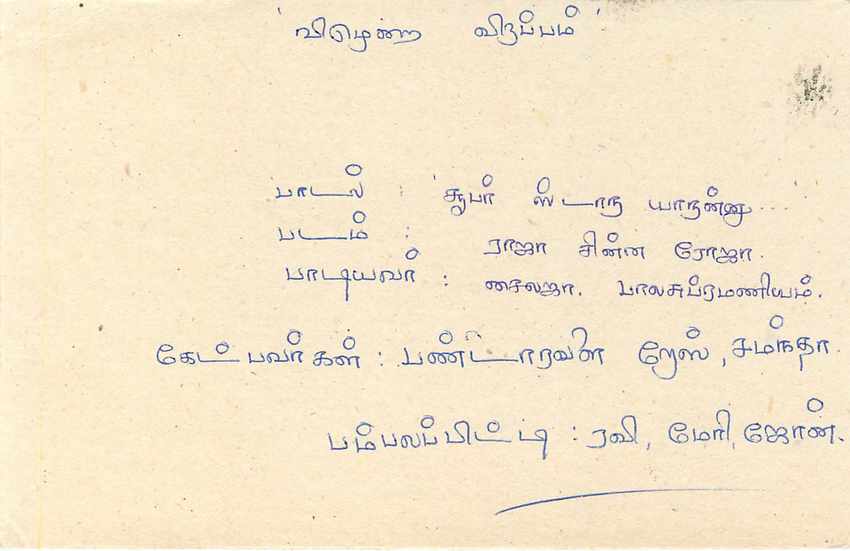 'விழென்ற விருப்பம்'
பாடல் : 'சூபர் ஸ்டாரு யாருன்னு...
படம் : ராஜா சின்ன ரோஜா.
பாடியவர் : சைலஜா. பாலசுப்ரமணியம்.
கேட்பவர்கள் : பண்டாரவளை றேஸ், சமந்தா.
பம்பலப்பிட்டி : ரவி, மேரி, ஜோன்.